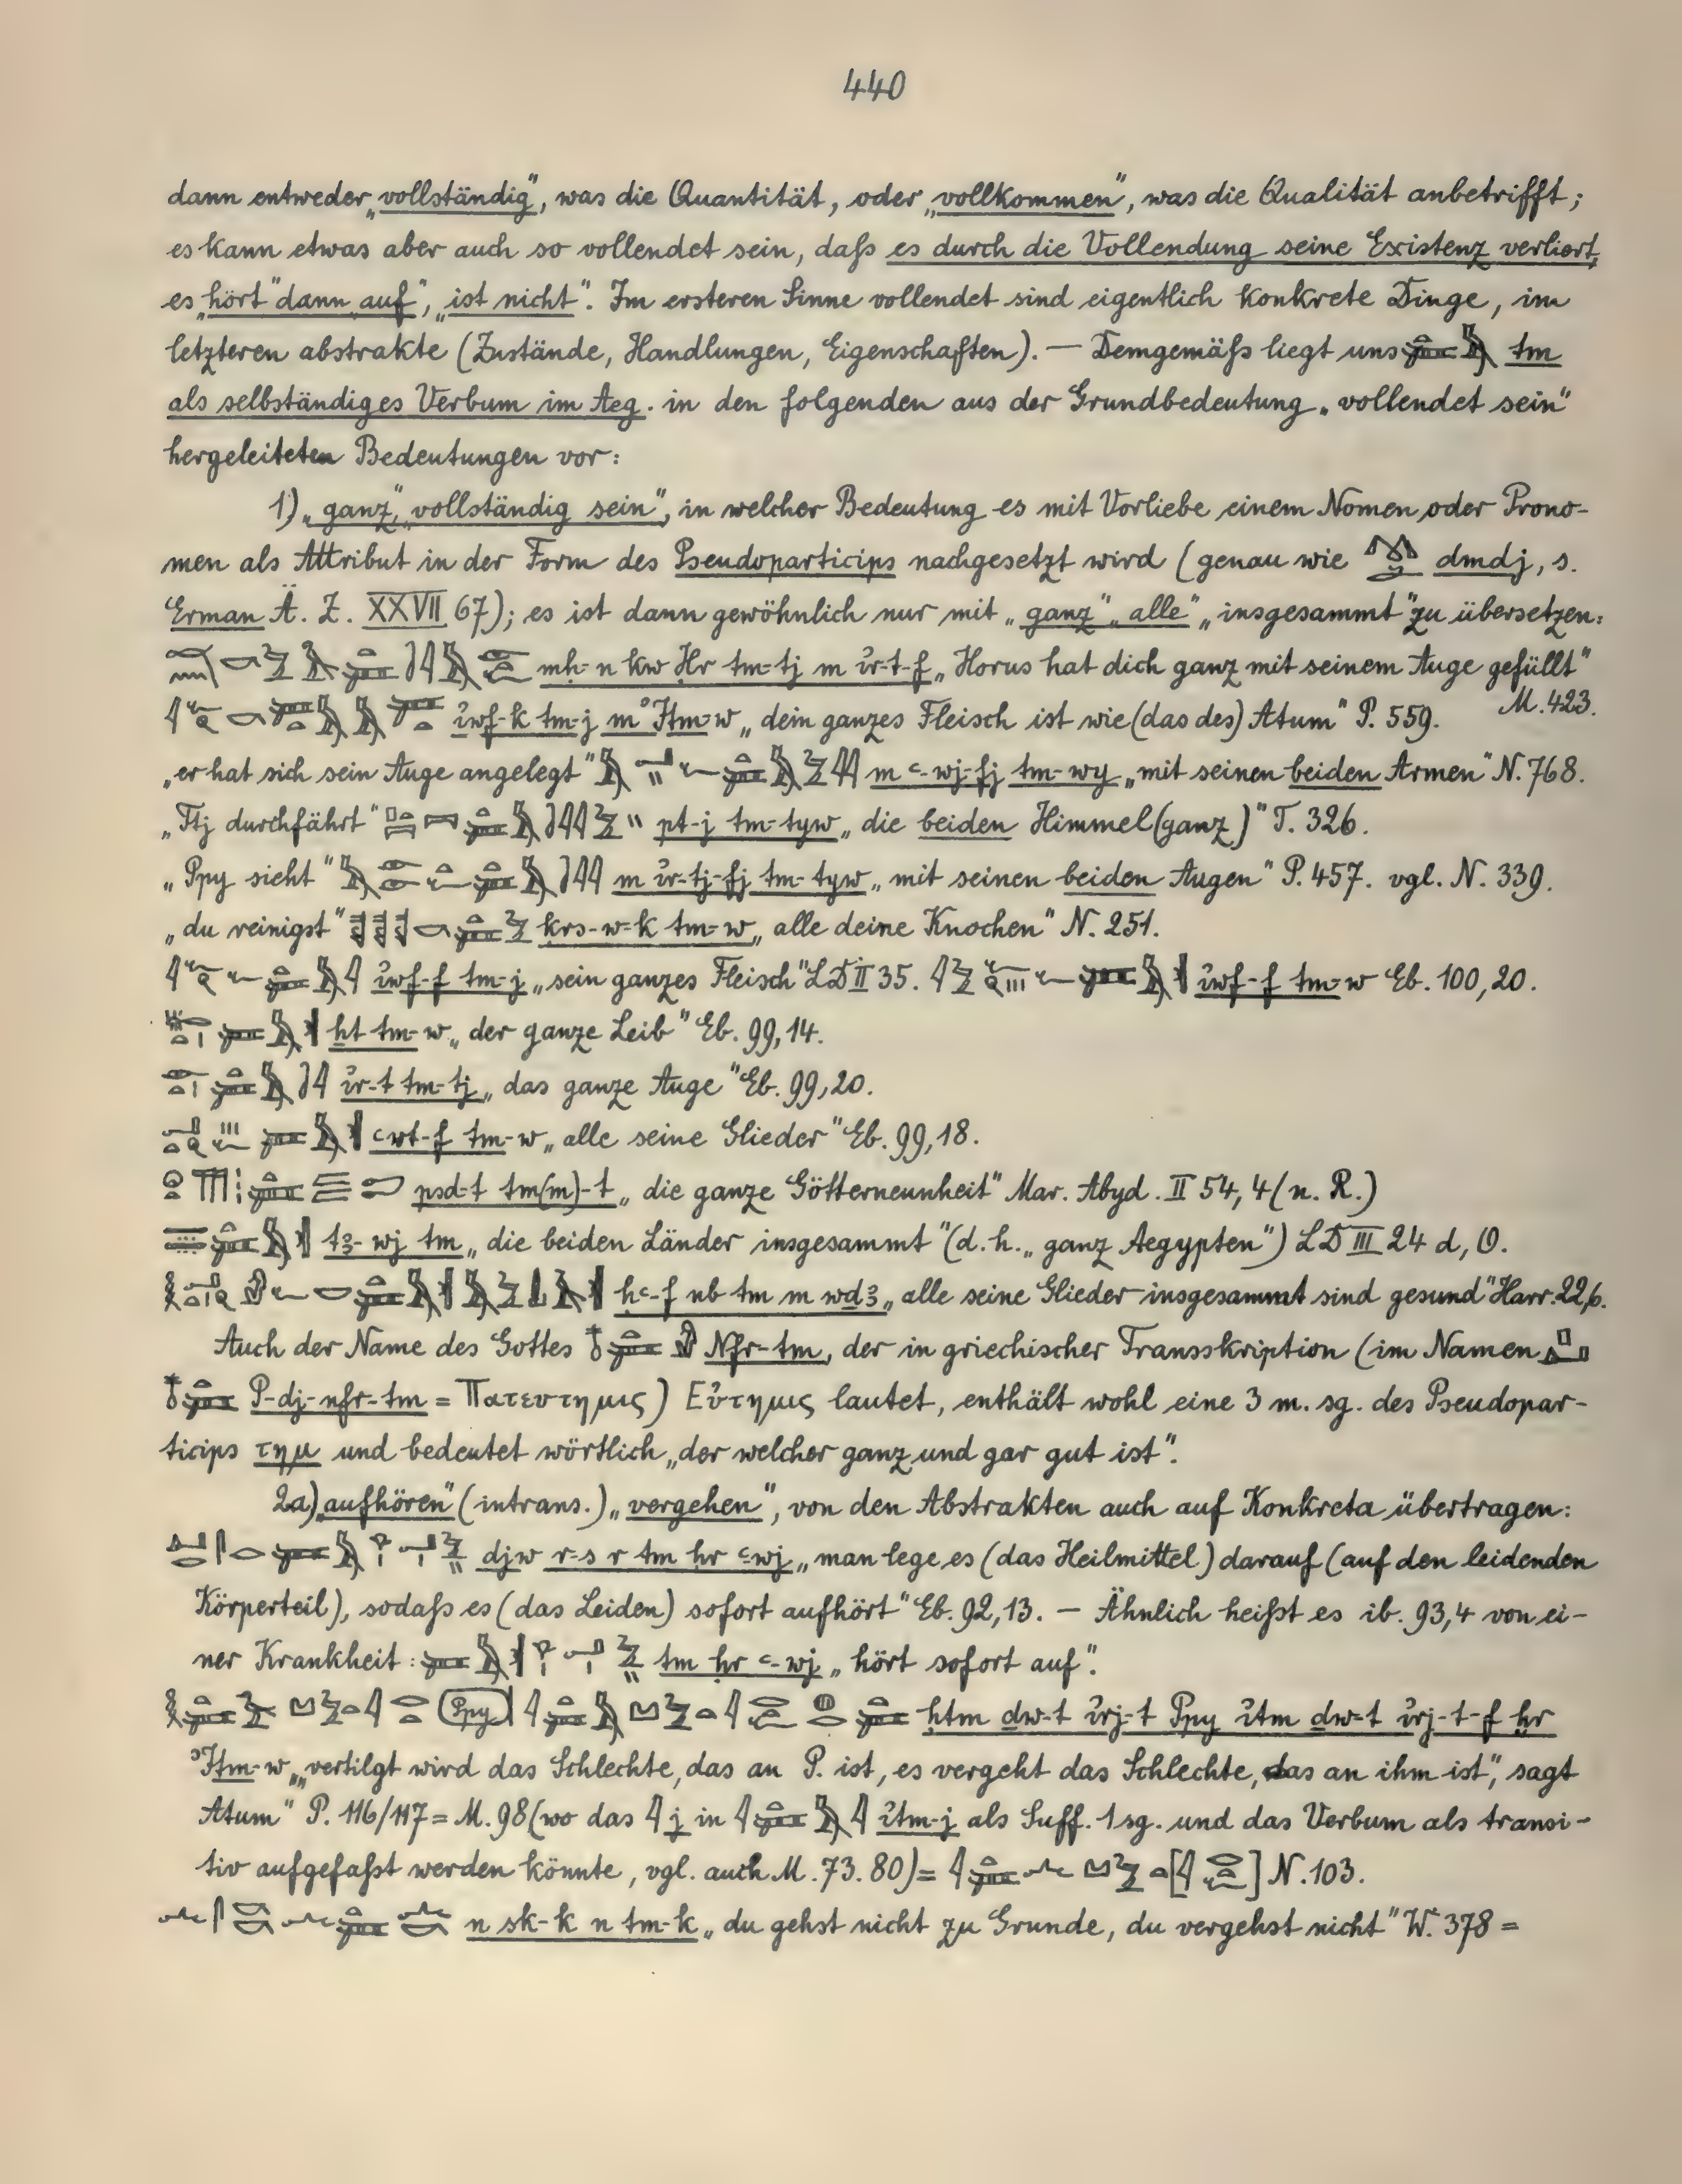 440
dann entweder „vollständig“, was die Quantität, oder „vollkommen“, was die Qualität anbetrifft;
es kann etwas aber auch so vollendet sein, daß es durch die Vollendung seine Existenz verliert,
es „hört“ dann auf“, „ist nicht“. Im ersteren Sinne vollendet sind eigentlich konkrete Dinge, im
letzteren abstrakte (Zustände, Handlungen, Eigenschaften). — Demgemäß liegt uns tm
als selbständiges Verbum im Aeg. in den folgenden aus der Grundbedeutung „vollendet sein“
hergeleiteten Bedeutungen vor:
1) „ganz“, „vollständig sein“, in welcher Bedeutung es mit Vorliebe einem Nomen oder Prono-
men als Attribut in der Form des Pseudoparticips nachgesetzt wird (genau wie dmdj, s.
Erman Ä. Z. XXVII 67); es ist dann gewöhnlich nur mit „ganz“ „alle“ „insgesammt“ zu übersetzen:
mḥ-n kw Ḥr tm-tj m ir-t-f „Horus hat dich ganz mit seinem Auge gefüllt“
M. 423.
iwf-k tm-j m Itm-w „dein ganzes Fleisch ist wie (das des) Atum“ P. 559.
„er hat sich sein Auge angelegt“ m ꜥ-wj-fj tm-wy „mit seinen beiden Armen“ N. 768.
„Ttj durchfährt“ pt-j tm-tyw „die beiden Himmel (ganz)“ T. 326.
„Ppy sieht“ m ir-tj-fj tm-tyw „mit seinen beiden Augen“ P. 457. vgl. N. 339.
„du reinigst“ krs-w-k tm-w „alle deine Knochen“ N. 251.
iwf-f tm-j „sein ganzes Fleisch“ LD II 35. iwf-f tm-w Eb. 100, 20.
ht tm-w „der ganze Leib“ Eb. 99, 14.
ir-t tm-tj „das ganze Auge“ Eb. 99, 20.
ꜥwt-f tm-w „alle seine Glieder“ Eb. 99, 18.
psd-t tm(m)-t „die ganze Götterneunheit“ Mar. Abyd. II 54, 4 (n. R.)
tꜣ-wj tm „die beiden Länder insgesammt“ (d. h. „ganz Aegypten“) LD III 24 d, O.
ḥꜥ-f nb tm m wdꜣ „alle seine Glieder insgesammt sind gesund“ Harr. 22,6.
Auch der Name des Gottes Nfr-tm, der in griechischer Transskription (im Namen
P-dj-nfr-tm = Πατευτημις) Εὐτημις lautet, enthält wohl eine 3 m. sg. des Pseudopar-
ticips τημ und bedeutet wörtlich „der welcher ganz und gar gut ist“.
2a) „aufhören“ (intrans.) „vergehen“, von den Abstrakten auch auf Konkreta übertragen:
djw r-s r tm ḥr ꜥwj „man lege es (das Heilmittel) darauf (auf den leidenden
Körperteil), sodaß es (das Leiden) sofort aufhört“ Eb. 92, 13. — Ähnlich heißt es ib. 93,4 von ei-
ner Krankheit: tm ḥr ꜥ-wj „hört sofort auf“.
ḥtm dw-t irj-t Ppy itm dw-t irj-t-f ḫr
Itm-w „„vertilgt wird das Schlechte, das an P. ist, es vergeht das Schlechte, das an ihm ist“, sagt
Atum“ P. 116/117 = M. 98 (wo das j in itm-j als Suff. 1 sg. und das Verbum als transi-
tiv aufgefaßt werden könnte, vgl. auch M. 73. 80) = N. 103.
n sk-k n tm-k „du gehst nicht zu Grunde, du vergehst nicht“ W. 378 =